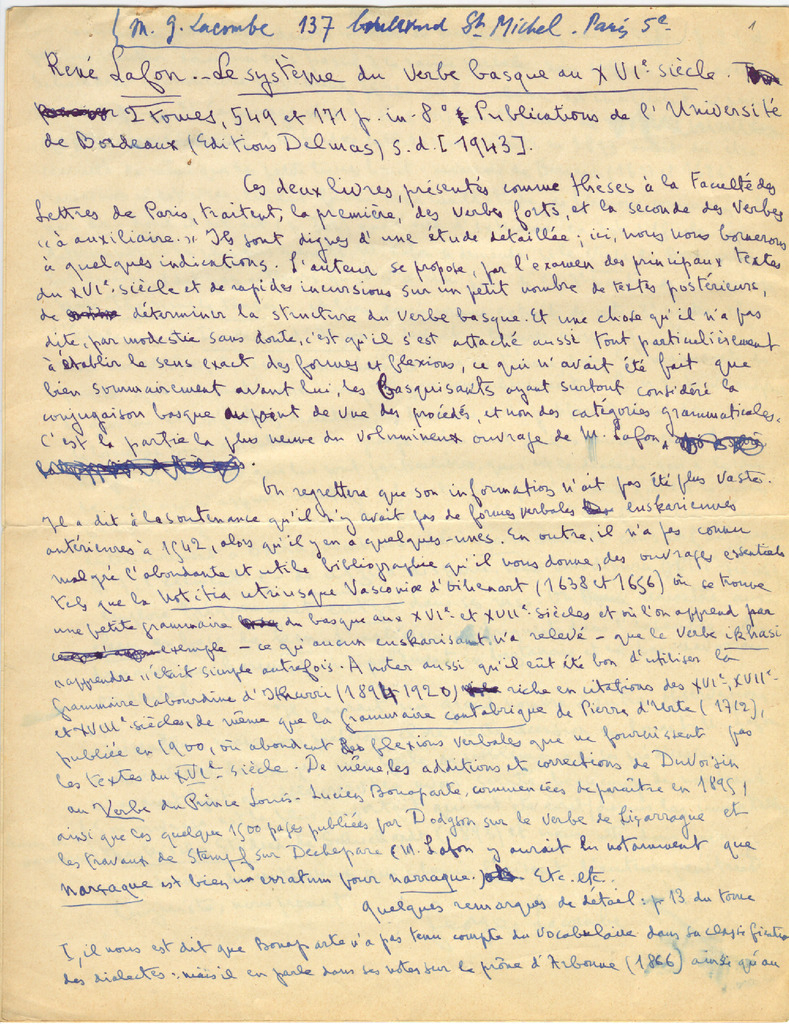 M. G. Lacombe 137 boulevard St Michel. Paris 5e
1
René Lafon. - Le système du verbe basque au XVIe siècle.
2 Tomes, 549 et 171 p. in-8° Publications de l'Université
de Bordeaux (Editions Delmas) s.d. [1943].
Ces deux livres, présentés comme thèses à la Faculté des
Lettres de Paris, traitent, la première, des verbes forts, et la seconde des verbes
"à auxiliaire." Ils sont dignes d'une étude détaillée ; ici, nous nous bornerons
à quelques indications. L'auteur se propose, par l'examen des principaux textes
du XVIe siècle et de rapides incursions sur un petit nombre de textes postérieurs,
de déterminer la structure du verbe basque. Et une chose qu'il n'a pas
dite, par modestie sans doute, c'est qu'il s'est attaché aussi tout particulièrement
à établir le sens exact des formes et flexions, ce qui n'avait été fait que
bien sommairement avant lui, les Basquisants ayant surtout considéré la
conjugaison basque au point de vue des procédés, et non des catégories grammaticales.
C'est la partie la plus neuve du volumineux ouvrage de M. Lafon
.
On regrettera que son information n'ait pas été plus vaste.
Il a dit à la soutenance qu'il n'y avait pas de formes verbales euskariennes
antérieures à 1542, alors qu'il y en a quelques-unes. En outre, il n'a pas connu
malgré l'abondante et utile bibliographie qu'il nous donne, des ouvrages essentiels
tels que la Notitia utriusque Vasconiæ d'Oihenart (1638 et 1656) où se trouve
une petite grammaire du basque aux XVIe et XVIIe siècles et où l'on apprend par
exemple - ce qu'aucun euskarisant n'a relevé - que le verbe ikhasi
"apprendre" était simple autrefois. A noter aussi qu'il eût été bon d'utiliser la
Grammaire labourdine d'Ithurri (1894 1920) riche en citations des XVIe, XVIIe
et XVIIIe siècles, de même que la Grammaire cantabrique de Pierre d'Urte (1712),
publiée en 1900, où abondent flexions verbales que ne fournissent pas
les textes du XVIe siècle. De même, les additions et corrections de Duvoisin
au Verbe du Prince Louis-Lucien Bonaparte, commencées de paraître en 1895,
ainsi que les quelque 1500 pages publiées par Dodgson sur le verbe de Liçarrague et
les travaux de Stempf sur Dechepare (M. Lafon y aurait lu notamment que
narraque est bien un erratum pour narraque.) Etc. etc.
Quelques remarques de détail : p 13 du tome
I, il nous est dit que Bonaparte n'a pas tenu compte du vocabulaire dans sa classification
des dialectes : mais il en parle dans ses notes sur le prône d'Arbonne (1866) ainsi qu'au